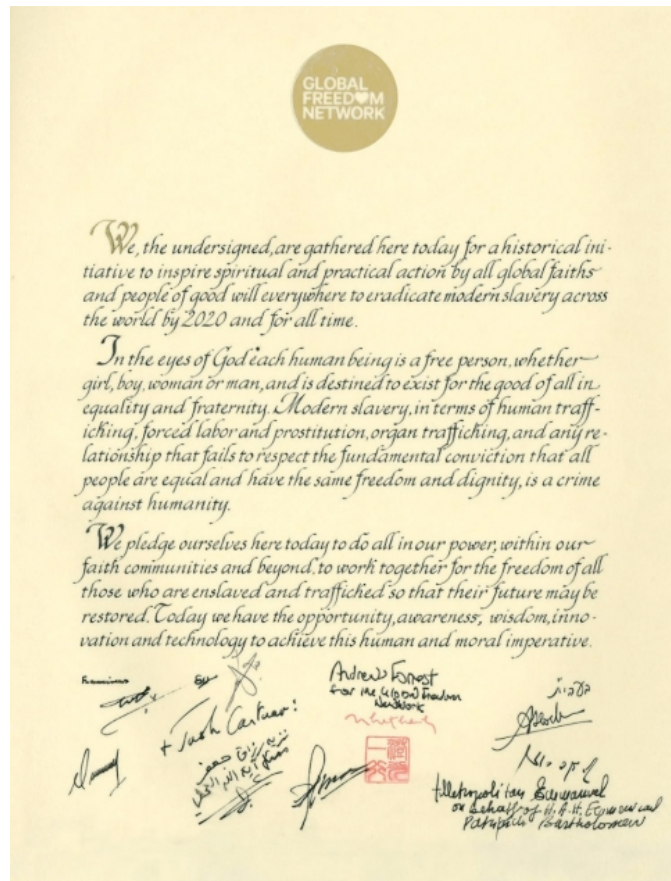 GLOBAL
FREEDOM
NETWORK
We, the undersigned, are gathered here today for a historical ini-
tiative to inspire spiritual and practical action by all global faiths
and people of good will everywhere to eradicate modern slavery across
the world by 2020 and for all time.
In the eyes of God each human being is a free person, whether
girl, boy, woman or man, and is destined to exist for the good of all in
equality and fraternity. Modern slavery, in terms of human traff-
icking, forced labor and prostitution, organ trafficking, and any re-
lationship that fails to respect the fundamental conviction that all
people are equal and have the same freedom and dignity, is a crime
against humanity.
We pledge ourselves here today to do all in our power, within our
faith communities and beyond, to work together for the freedom of all
those who are enslaved and trafficked so that their future may be
restored. Today we have the opportunity, awareness, wisdom, inno-
vation and technology to achieve this human and moral imperative.
Andrew Forrest
for the Global Freedom
Network
Metropolitan Emmanuel
on behalf of H.A.H. Ecumenical
Patriarch Bartholomew